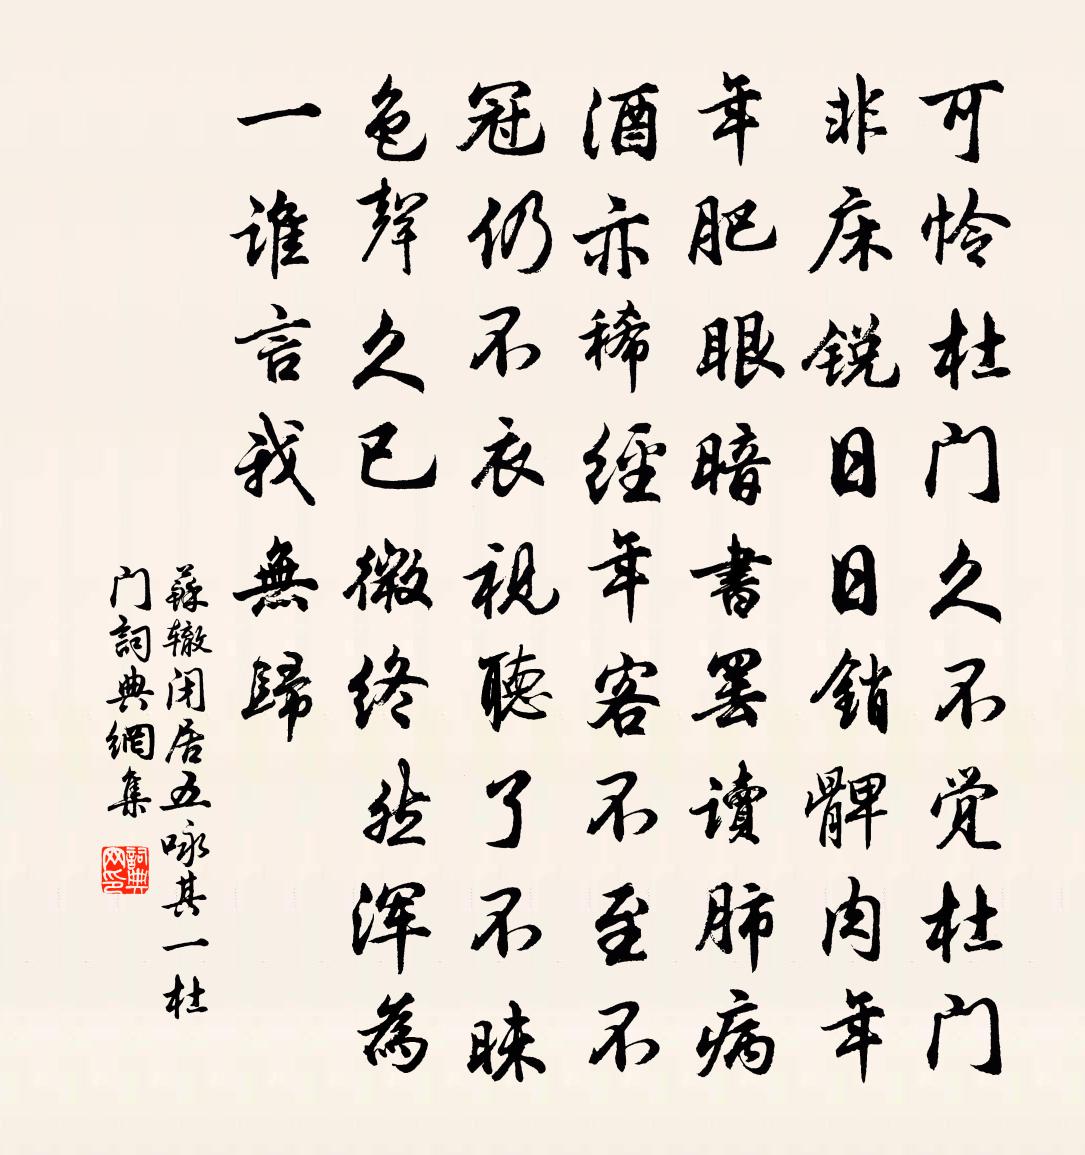 可怜杜门久不觉杜门
非床锐日日销髀肉年
年肥眼暗書罢读肺病
酒亦稀經年客不至不
冠仍不衣視聽了不昧
色聲久已微终然浑為
一谁言我無歸
蘇辙闭居五咏其一杜
门詞典網集
詞典网印